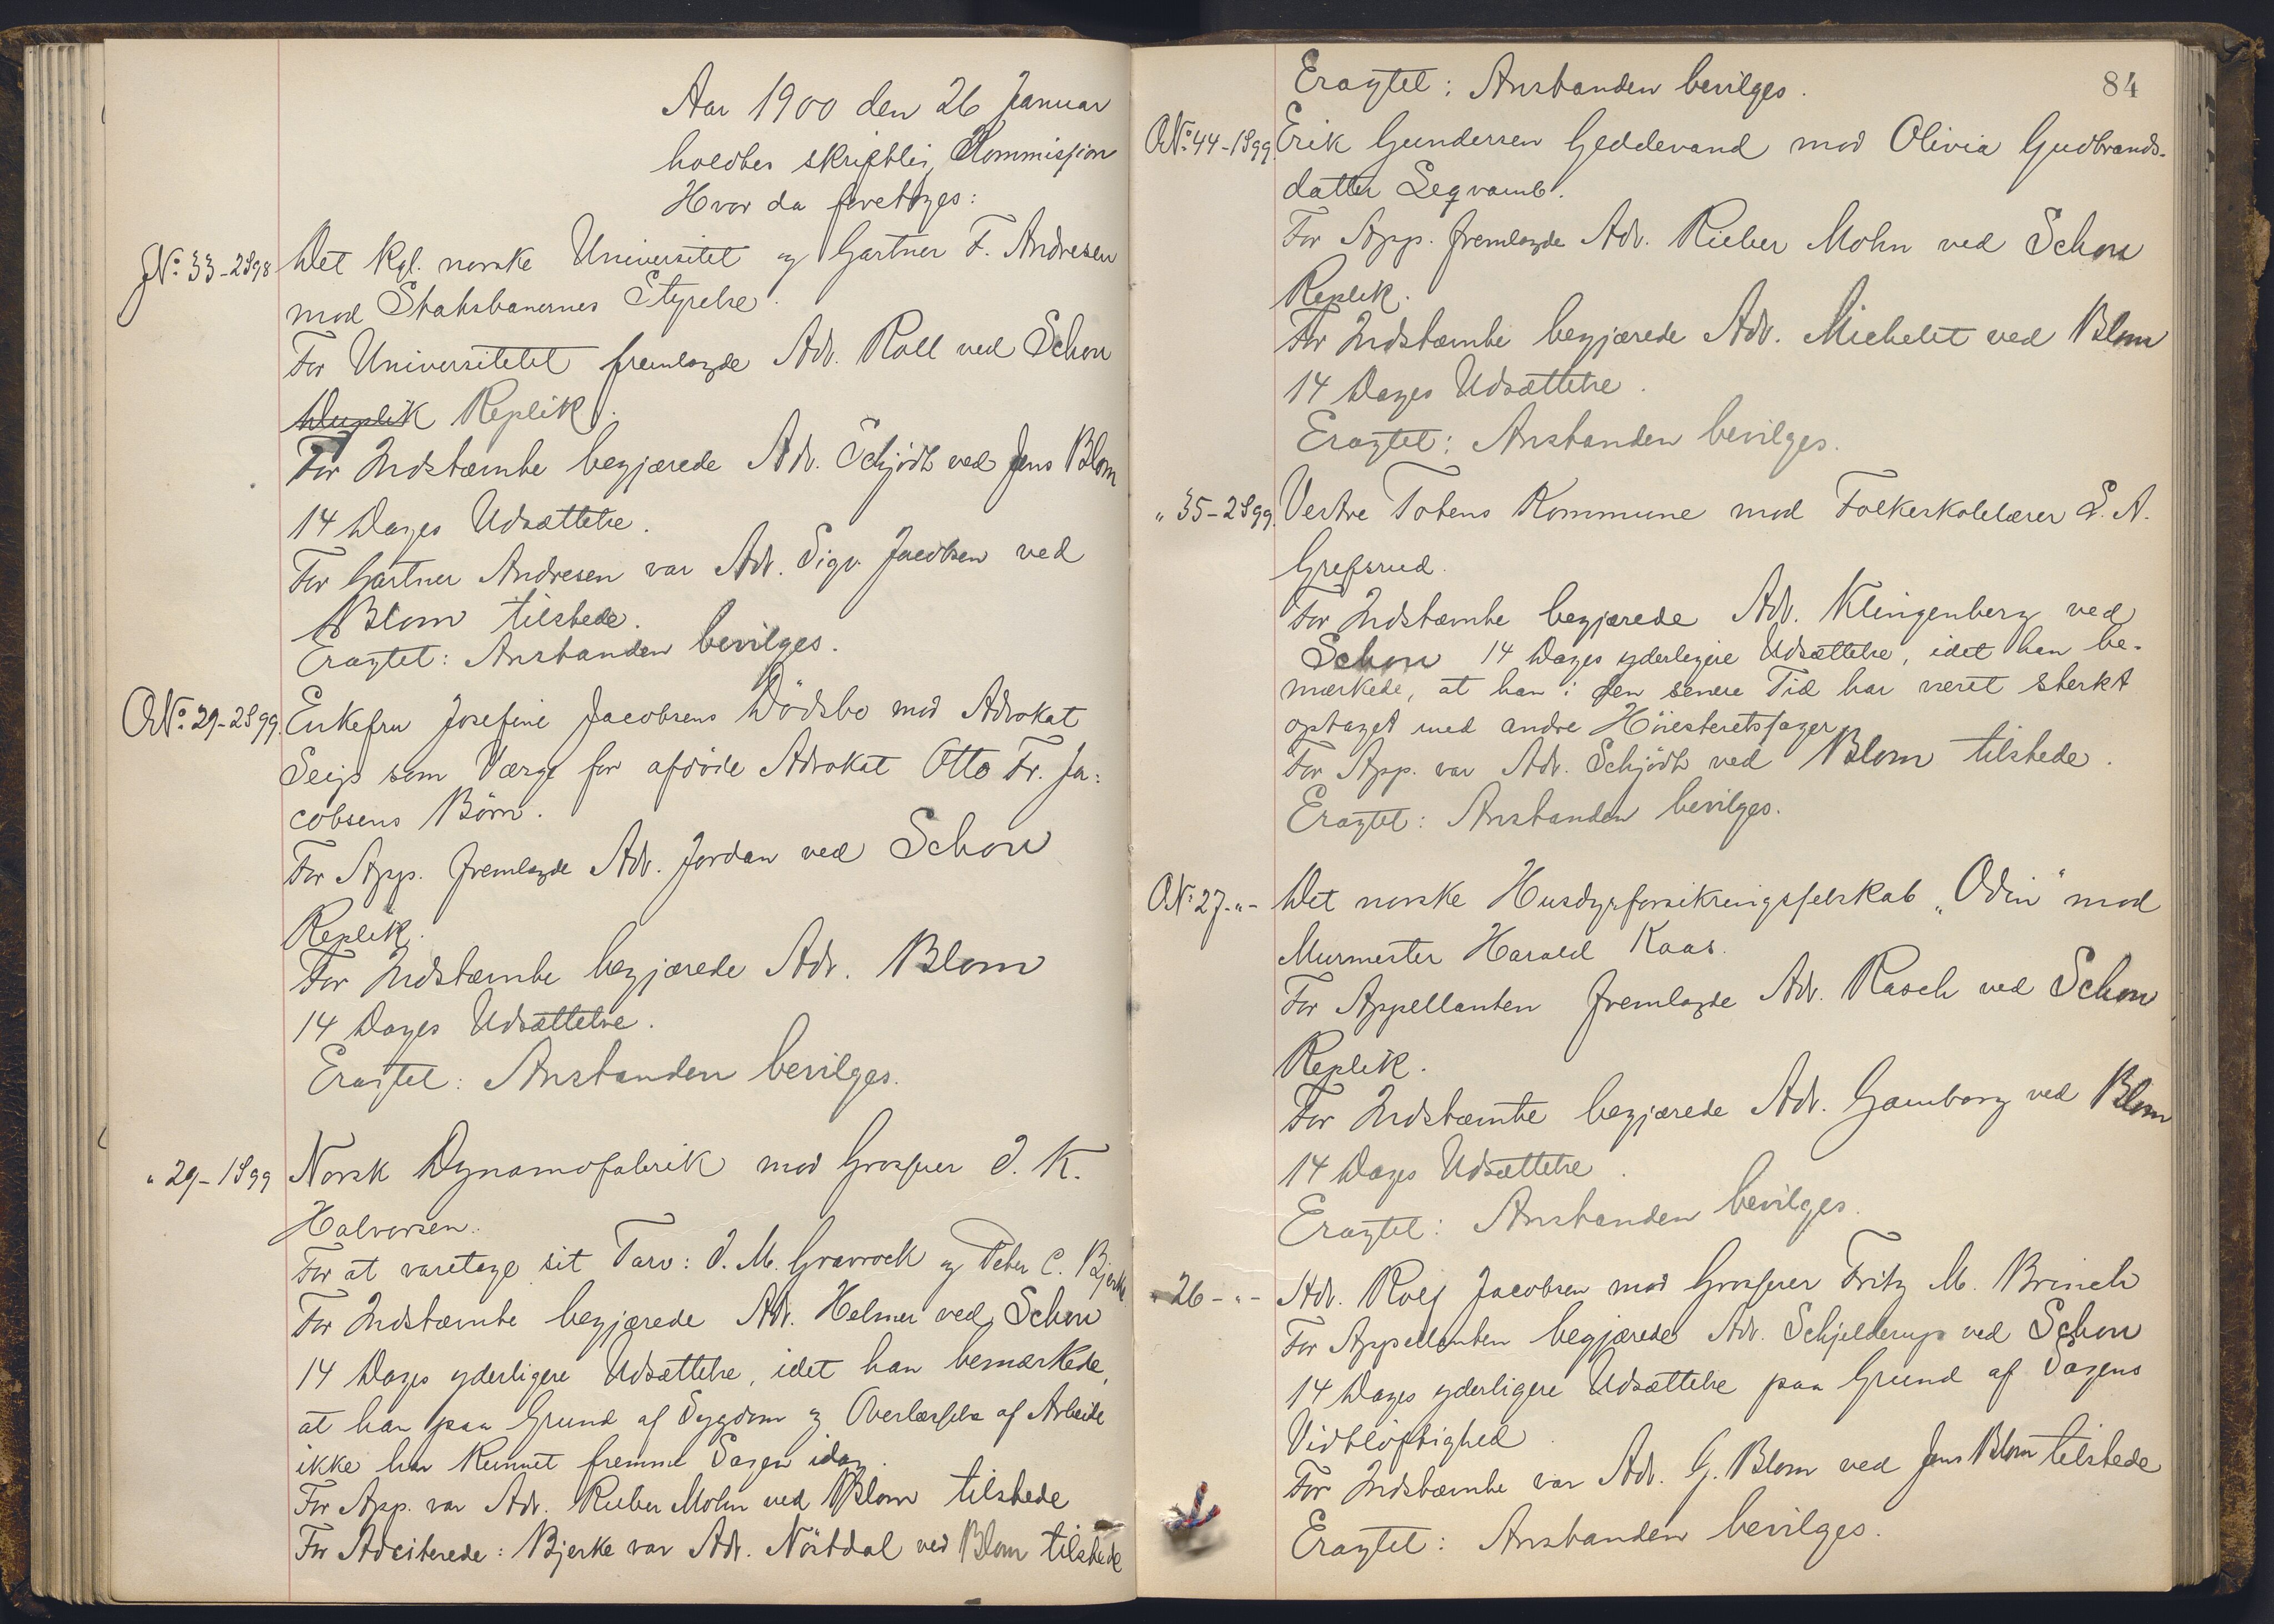 Aar 1900 den 26 Januar
holdtes skriftlig Kommission
Hvor da foretoges:
No 33-2S98 Det kgl. norske Universitet og Gartner F. Andresen
mod Statsbanernes Styrelse.
For Universitetet fremlagde Adv. Roll ved Schou
Duplik Replik.
For Indstævnte begjærede Adv. Schjödt ved Jens Blom
14 Dages Udsættelse.
For Gartner Andresen var Adv. Sigv. Jacobsen ved
Blom tilstede.
Eragtet: Anstanden bevilges.
No 29-2S99. Enkefru Josefine Jacobsens Dödsbo mod Advokat
Seip som Værge for afdöde Advokat Otto Fr. Ja:
cobsens Börn.
For App. fremlagde Adv. Jordan ved Schou
Replik.
For Indstævnte begjærede Adv. Blom
14 Dages Udsættelse.
Eragtet: Anstanden bevilges.
" 29-1S99 Norsk Dynamofabrik mod Grosserer J. K.
Halvorsen.
For at varetage sit Tarv: J. M. Gravrock og Peter C. Bjerke
For Indstævnte begjærede Adv. Helmer ved Schou
14 Dages yderligere Udsættelse, idet han bemærkede,
at han paa Grund af Sygdom og Overlæsselse af Arbeide
ikke har kunnet fremme Sagen idag.
For App. var Adv. Rieber Mohn ved Blom tilstede
For Adciterede: Bjerke var Adv. Nöstdal ved Blom tilstede
84
Eragtet: Anstanden bevilges.
No 44-1S99. Erik Gundersen Geddevand mod Olivia Gudbrands-
datter Legvamb.
For App. fremlagde Adv. Rieber Mohn ved Schou
Replik.
For Indstævnte begjærede Adv. Michelet ved Blom
14 Dages Udsættelse.
Eragtet: Anstanden bevilges.
" 35-2S99. Vestre Totens Kommune mod Folkeskolelærer L. A.
Grefsrud.
For Indstævnte begjærede Adv. Klingenberg ved
Schou 14 Dages yderligere Udsættelse, idet han be-
mærkede, at han i den senere Tid har været sterkt
optaget med andre Höiesteretssager.
For App. var Adv. Schjödt ved Blom tilstede.
Eragtet: Anstanden bevilges.
No 27-"- Det norske Husdyrforsikringsselskab "Odin" mod
Murmester Harald Kaas.
For Appellanten fremlagde Adv. Rasch ved Schou
Replik.
For Indstævnte begjærede Adv. Gamborg ved Blom
14 Dages Udsættelse.
Eragtet: Anstanden bevilges.
" 26-"- Adv. Rolf Jacobsen mod Grosserer Fritz M. Brinch
For Appellanten begjærede Adv. Schjelderup ved Schou
14 Dages yderligere Udsættelse paa Grund af Sagens
Vidtlöftighed.
For Indstævnte var Adv. G. Blom ved Jens Blom tilstede
Eragtet: Anstanden bevilges.